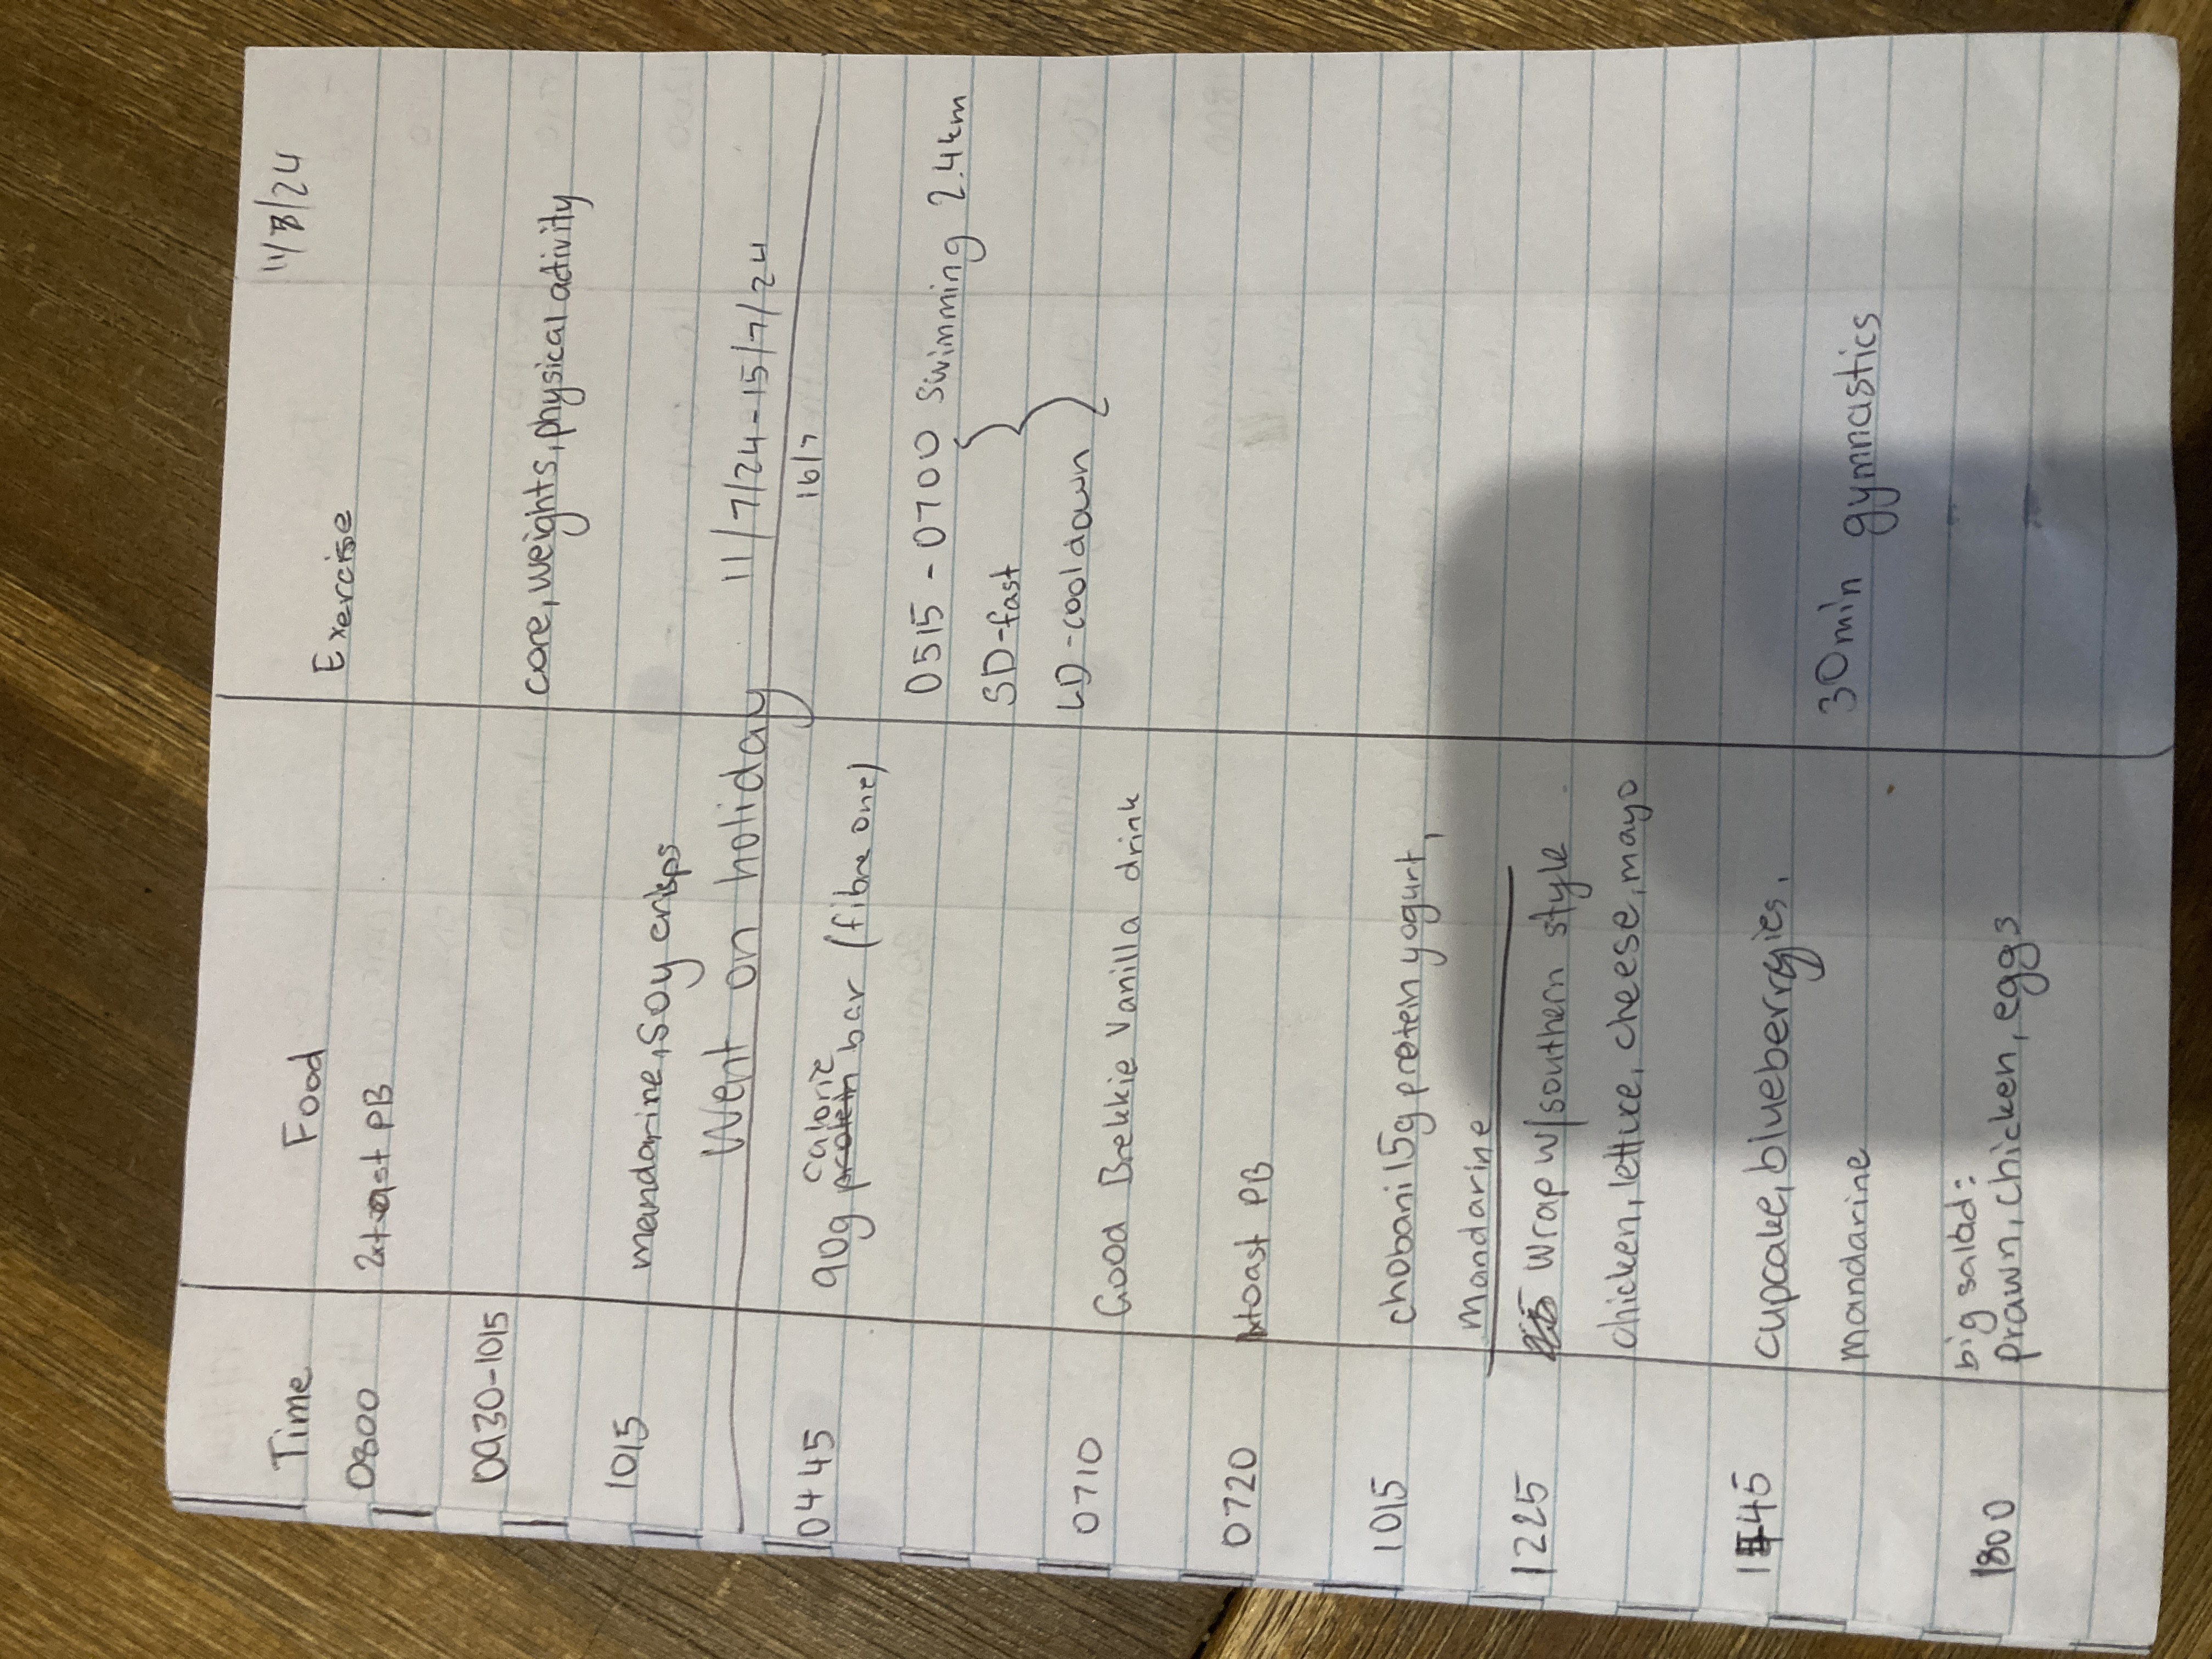 11/7/24
Time Food Exercise
0800 2xtoast PB
0930-1015 core, weights, physical activity
1015 mandarine, soy crisps
Went on holiday 11/7/24-15/7/24
16/7
calorie
0445 90g protein bar (fibre one)
0515-0700 swimming 2.4km
SD-fast
LD-cooldown
0710 Good Brekkie Vanilla drink
0720 1xtoast PB
1015 chobani 15g protein yogurt,
mandarine
1225 wrap w/southern style
chicken, lettuce, cheese, mayo
1545 cupcake, blueberries,
mandarine
30min gymnastics
big salad:
1800 prawn, chicken, eggs